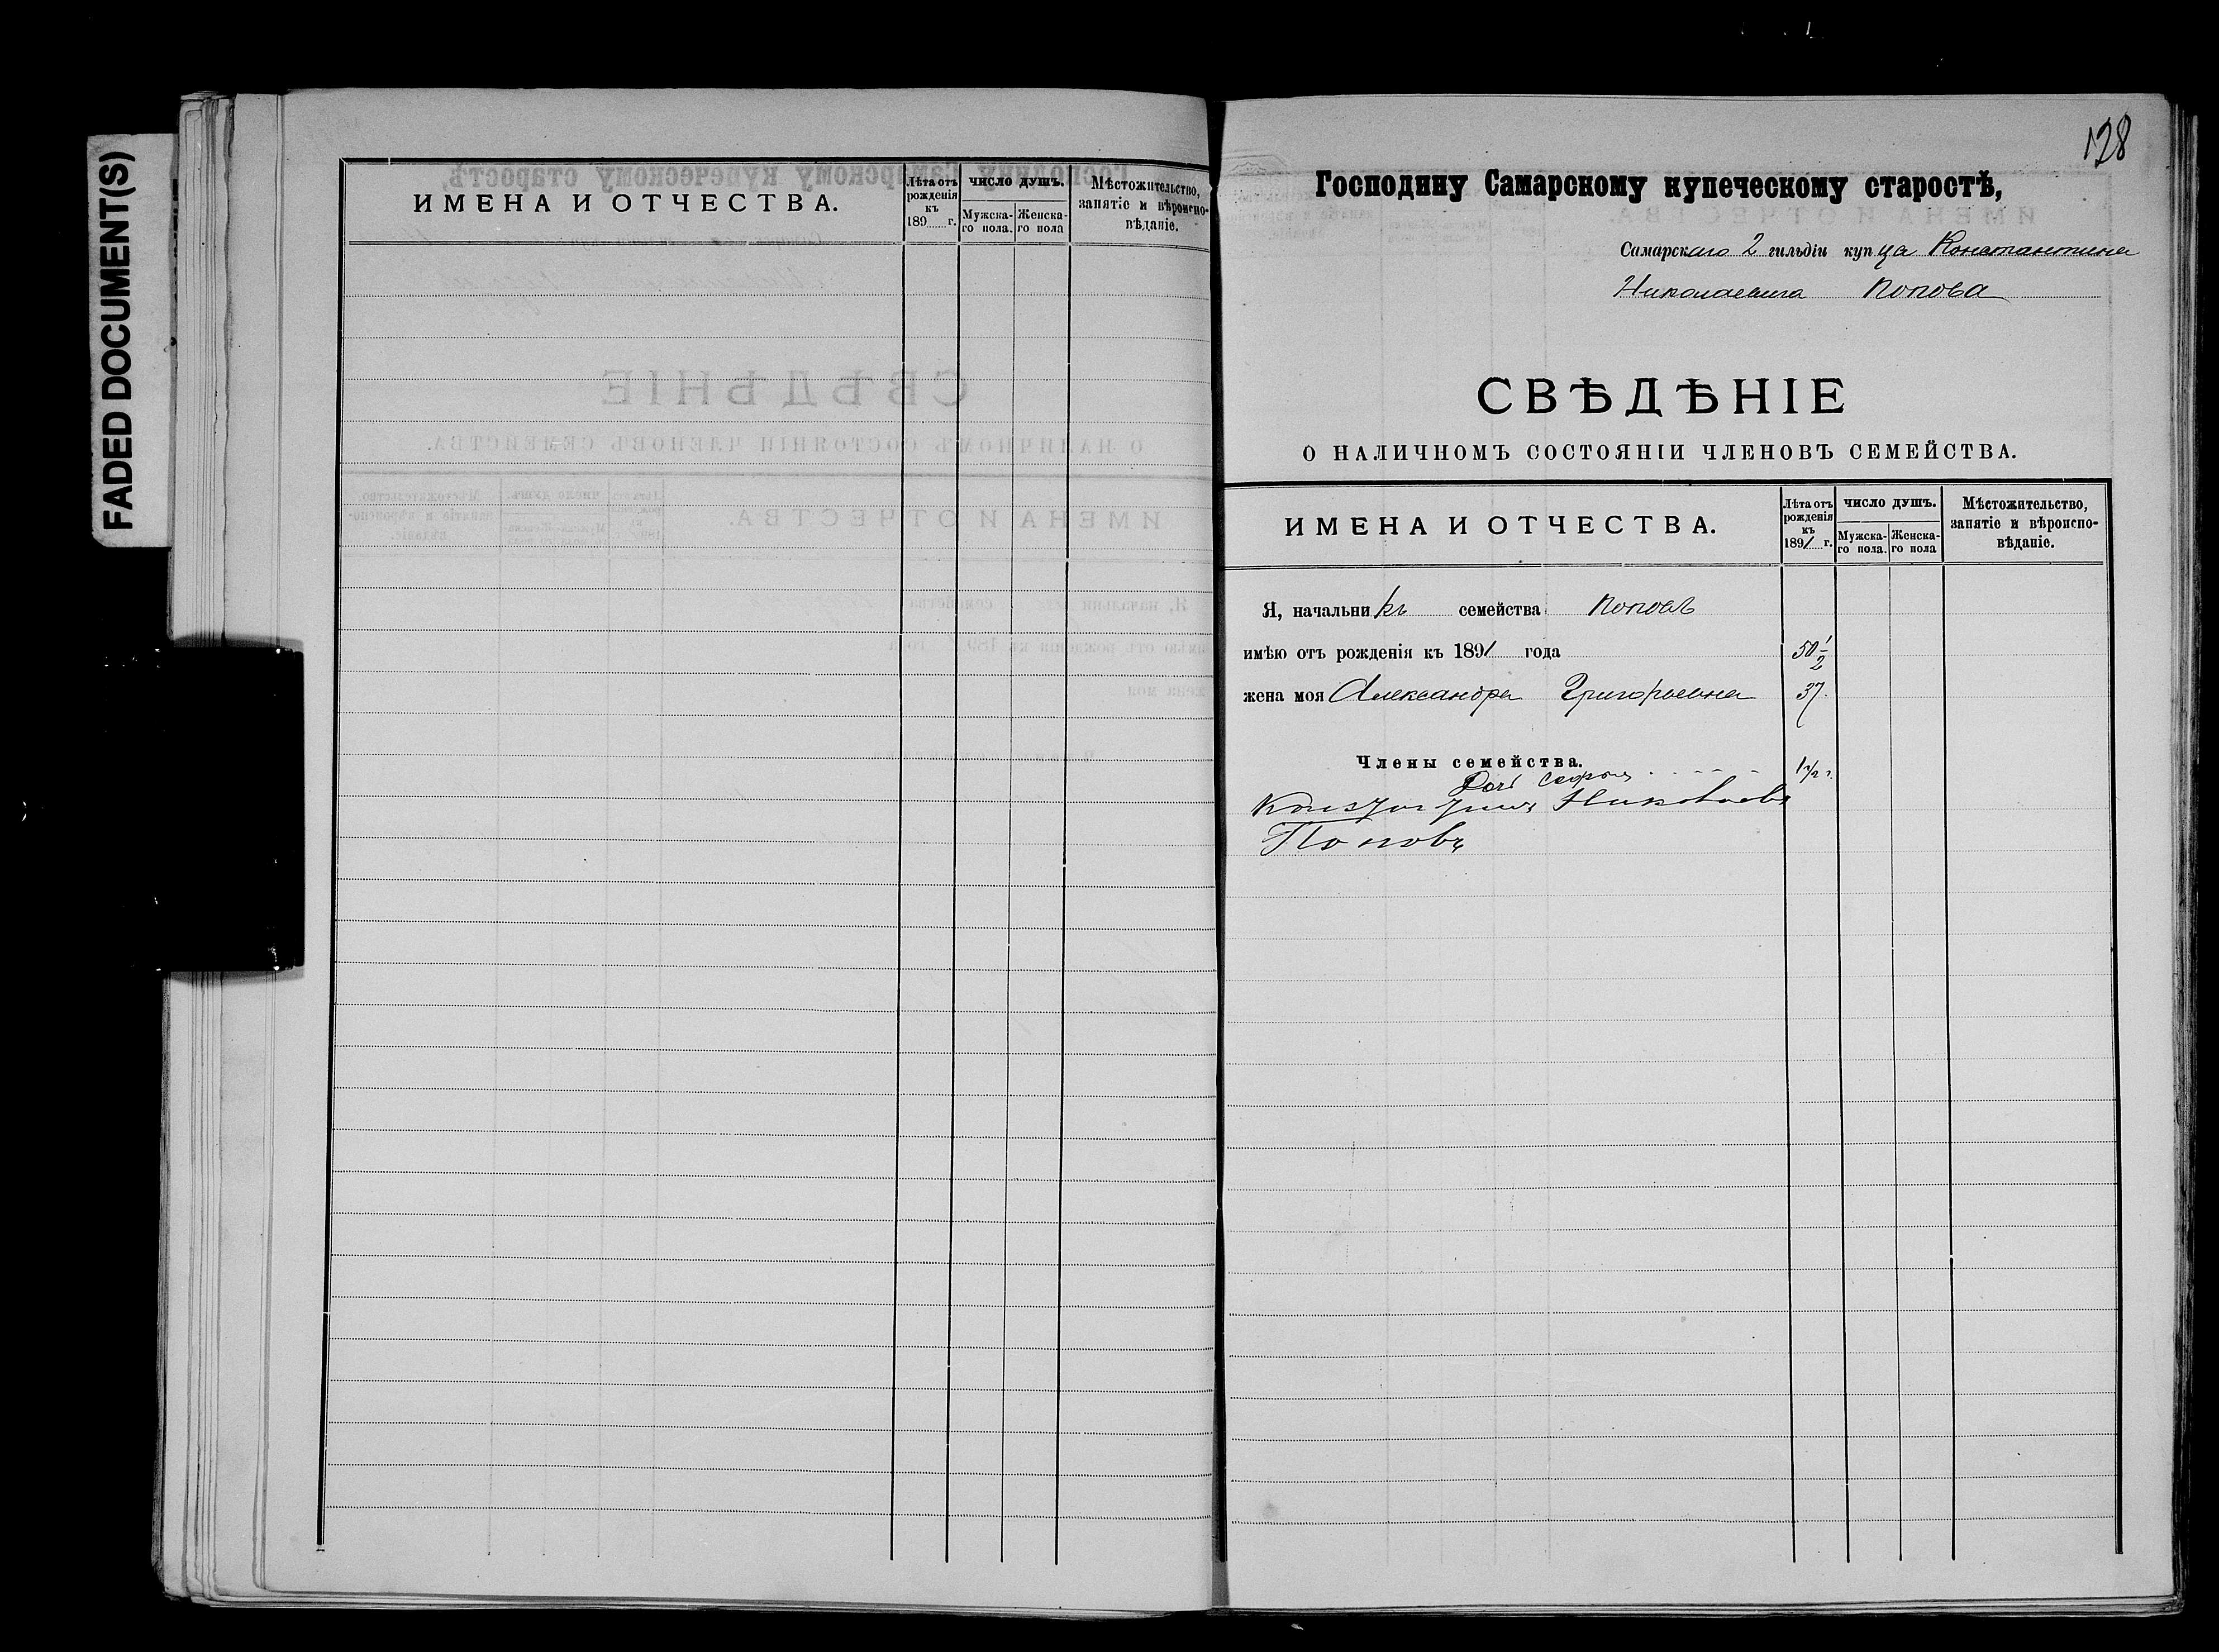 FADED DOCUMENT(S)
ИМЕНА И ОТЧЕСТВА.
Лѣта отъ рожденія къ 189 г.
ЧИСЛО ДУШЪ.
Мужска-го пола.
Женска-го пола
Мѣстожительство, занятіе и вѣроиспо-вѣданіе.
128
Господину Самарскому купеческому старостѣ,
Самарскаго 2 гильдіи купца Константина
Николаевича Попова
СВѢДѢНІЕ
О НАЛИЧНОМЪ СОСТОЯНІИ ЧЛЕНОВЪ СЕМЕЙСТВА.
ИМЕНА И ОТЧЕСТВА.
Лѣта отъ рожденія къ 1891 г.
ЧИСЛО ДУШЪ.
Мужска-го пола.
Женска-го пола
Мѣстожительство, занятіе и вѣроиспо-вѣданіе.
Я, начальникъ семейства Поповъ
имѣю отъ рожденія къ 1891 года 50 1/2
жена моя Александра Григорьевна 37.
Члены семейства.
Дочь Софья
Константинъ Николаевъ
Поповъ